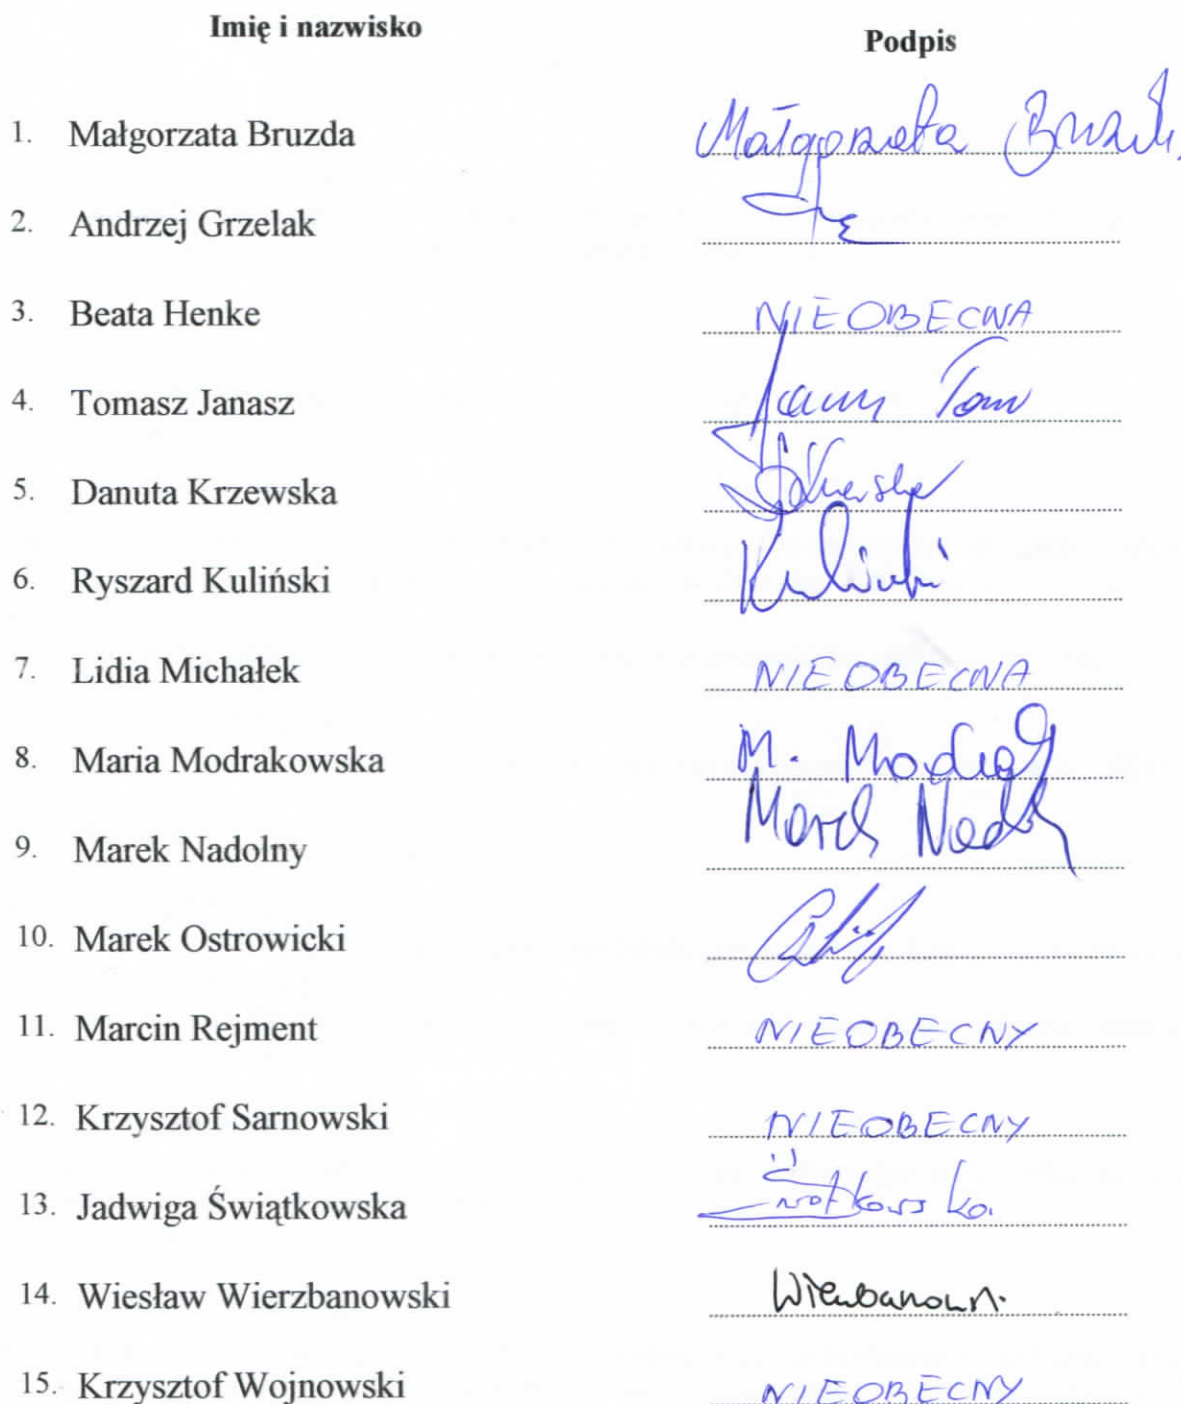 Imię i nazwisko Podpis
1. Małgorzata Bruzda Małgorzata Bruzda
2. Andrzej Grzelak
3. Beata Henke NIEOBECNA
4. Tomasz Janasz
5. Danuta Krzewska
6. Ryszard Kuliński Kuliński
7. Lidia Michałek NIEOBECNA
8. Maria Modrakowska M.
9. Marek Nadolny Marek
10. Marek Ostrowicki
11. Marcin Rejment NIEOBECNY
12. Krzysztof Sarnowski NIEOBECNY
13. Jadwiga Świątkowska
14. Wiesław Wierzbanowski
15. Krzysztof Wojnowski NIEOBECNY